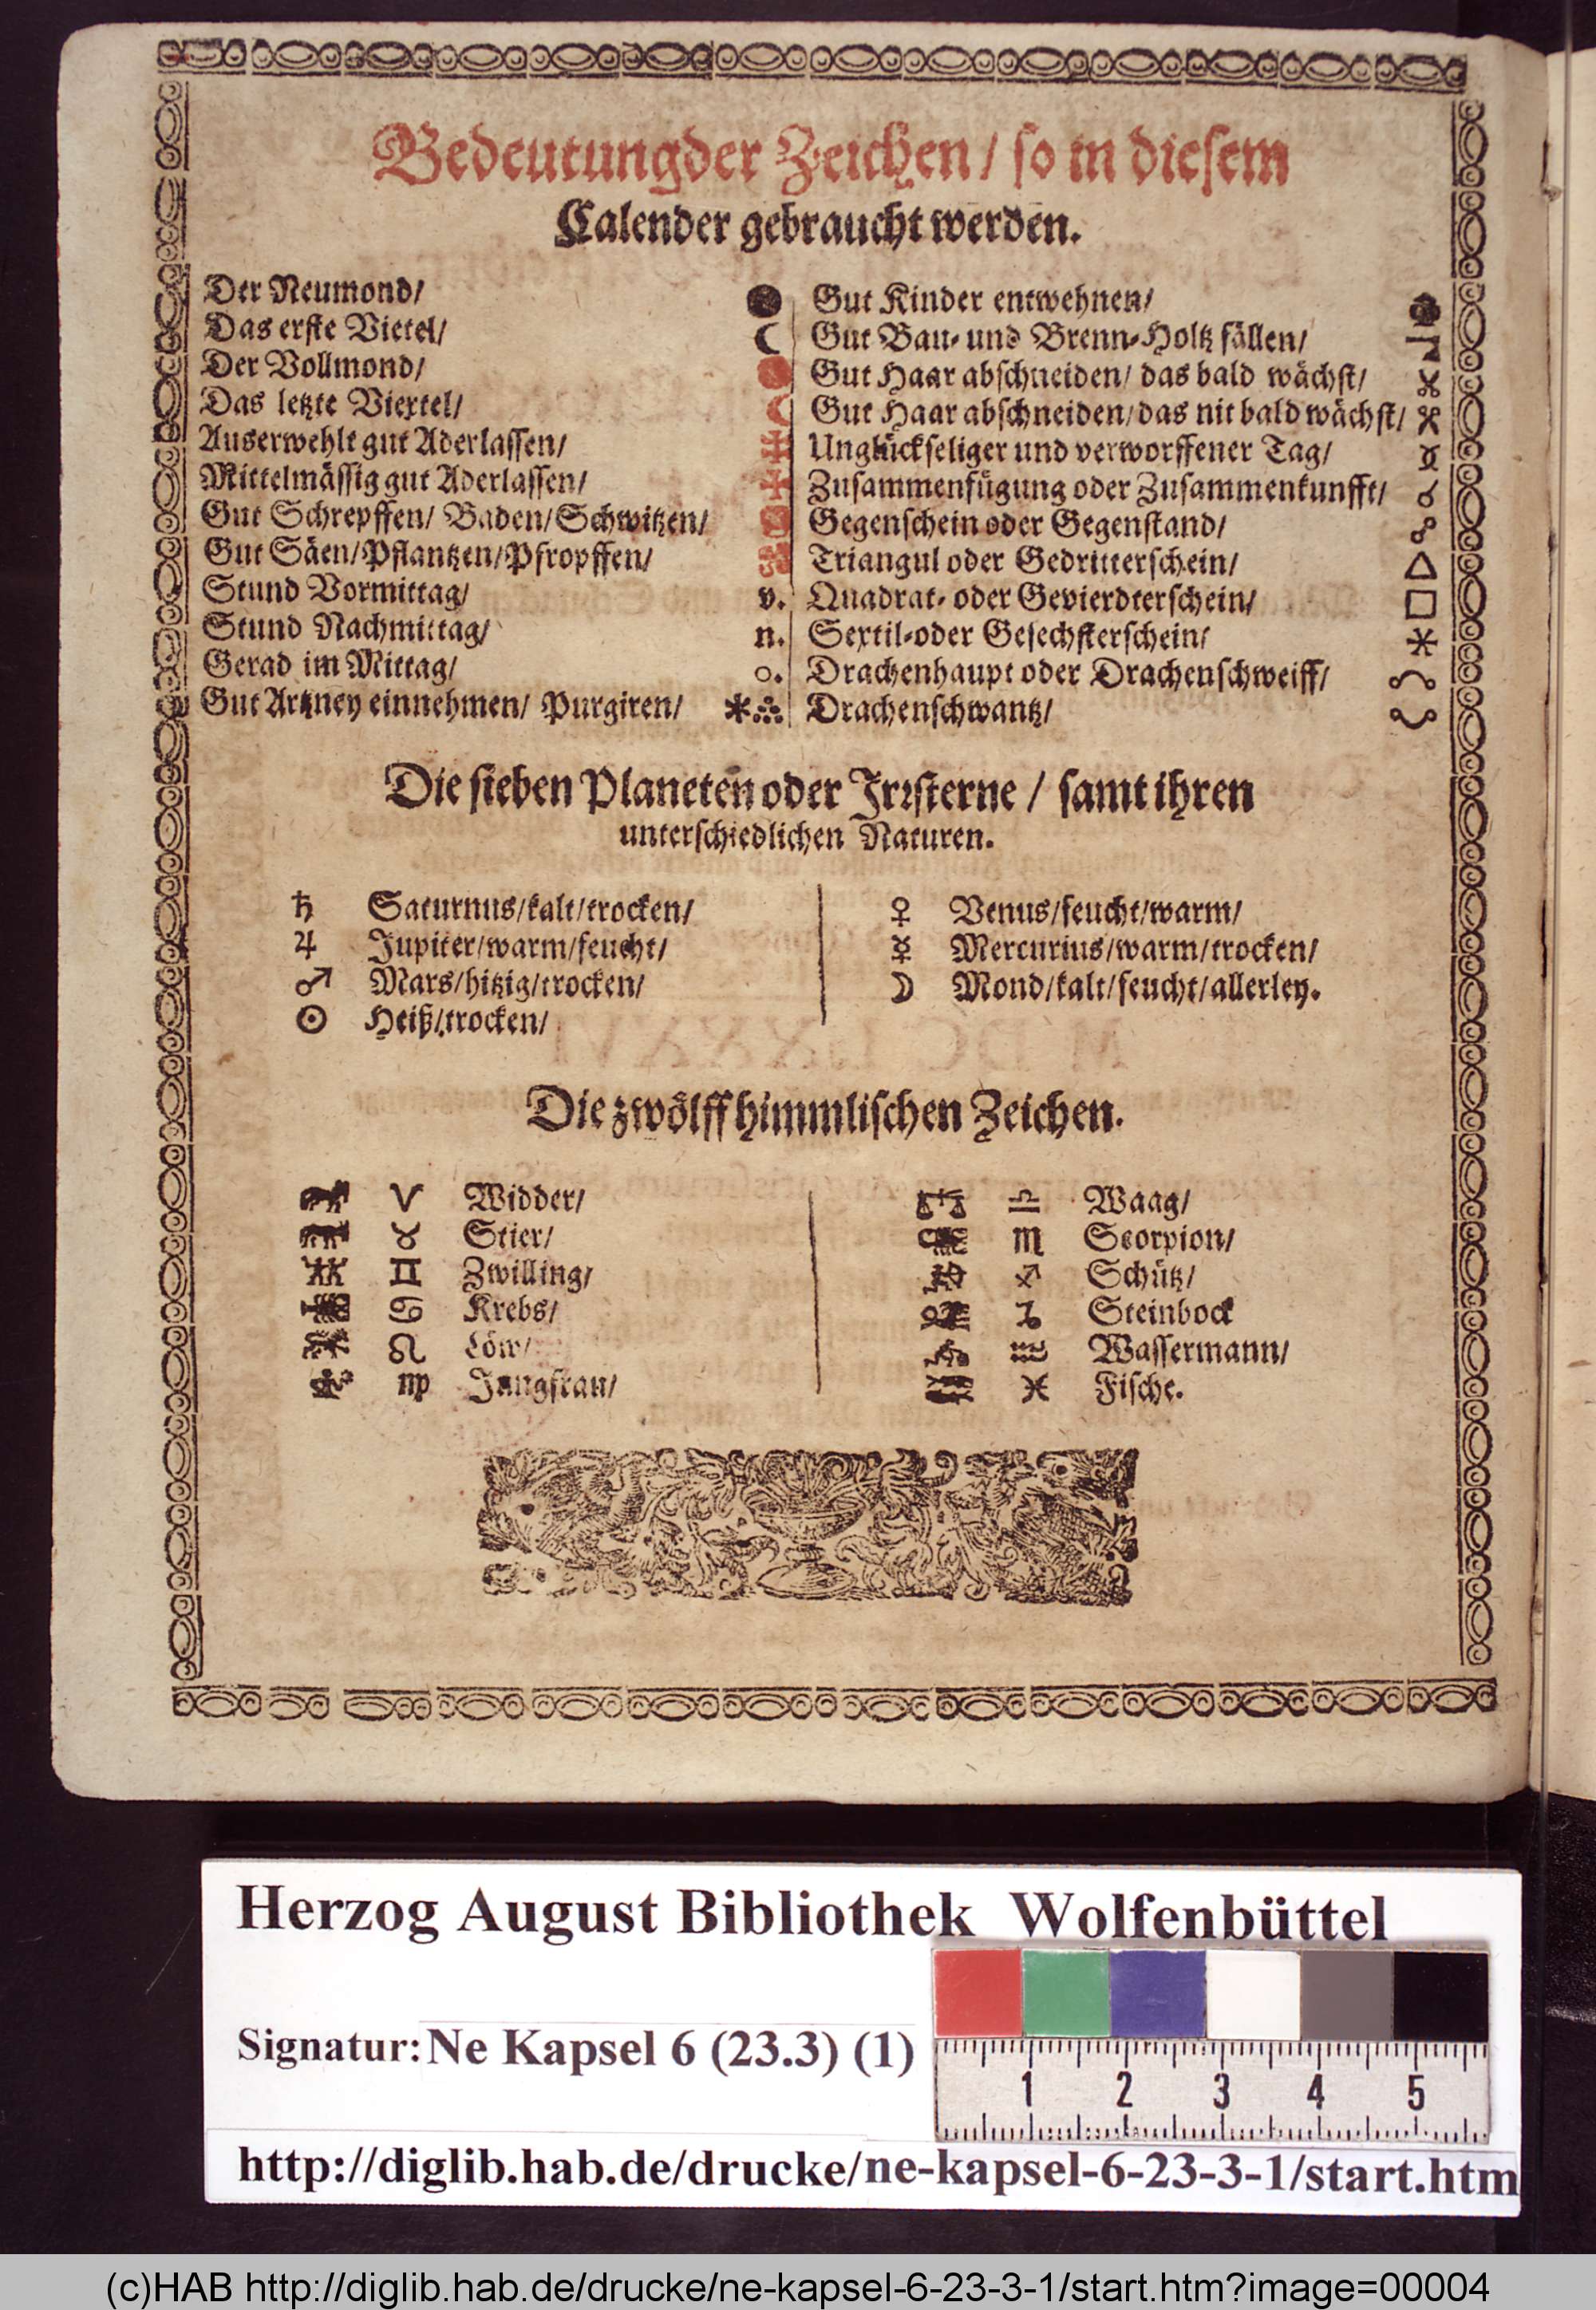 Bedeutung der Zeichen/ so in diesem
Calender gebraucht werden.
Der Neumond/ ●
Das erste Viertel/ ☾
Der Vollmond/
Das letzte Viertel/ ☾
Auserwehlt gut Aderlassen/
Mittelmässig gut Aderlassen/
Gut Schrepffen/ Baden/ Schwitzen/
Gut Säen/Pflantzen/Pfropffen/
Stund Vormittag/ v.
Stund Nachmittag/ n.
Gerad im Mittag/ o.
Gut Artzney einnehmen/ Purgiren/
Gut Kinder entwehnen/
Gut Bau- und Brenn-Holtz fällen/
Gut Haar abschneiden/ das bald wächst/
Gut Haar abschneiden/ das nit bald wächst/
Unglückseliger und verworffener Tag/
Zusammenfügung oder Zusammenkunfft/ ☌
Gegenschein oder Gegenstand/ ☍
Triangul oder Gedritterschein/ △
Quadrat- oder Gevierdterschein/ □
Sextil- oder Gesechsterschein/ ⚹
Drachenhaupt oder Drachenschweiff/ ☊
Drachenschwantz/ ☋
Die sieben Planeten oder Irrsterne / samt ihren
unterschiedlichen Naturen.
♄ Saturnus/kalt/trocken/
♃ Jupiter/warm/feucht/
♂ Mars/hitzig/trocken/
☉ Heiß/trocken/
♀ Venus/feucht/warm/
☿ Mercurius/warm/trocken/
☽ Mond/kalt/feucht/allerley.
Die zwölff himmlischen Zeichen.
♈ Widder/
♉ Stier/
♊ Zwilling/
♋ Krebs/
♌ Löw/
♍ Jungfrau/
♎ Waag/
♏ Scorpion/
♐ Schütz/
♑ Steinbock
♒ Wassermann/
♓ Fische.
Herzog August Bibliothek Wolfenbüttel
Signatur: Ne Kapsel 6 (23.3) (1)
1 2 3 4 5
http://diglib.hab.de/drucke/ne-kapsel-6-23-3-1/start.htm
(c)HAB http://diglib.hab.de/drucke/ne-kapsel-6-23-3-1/start.htm?image=00004